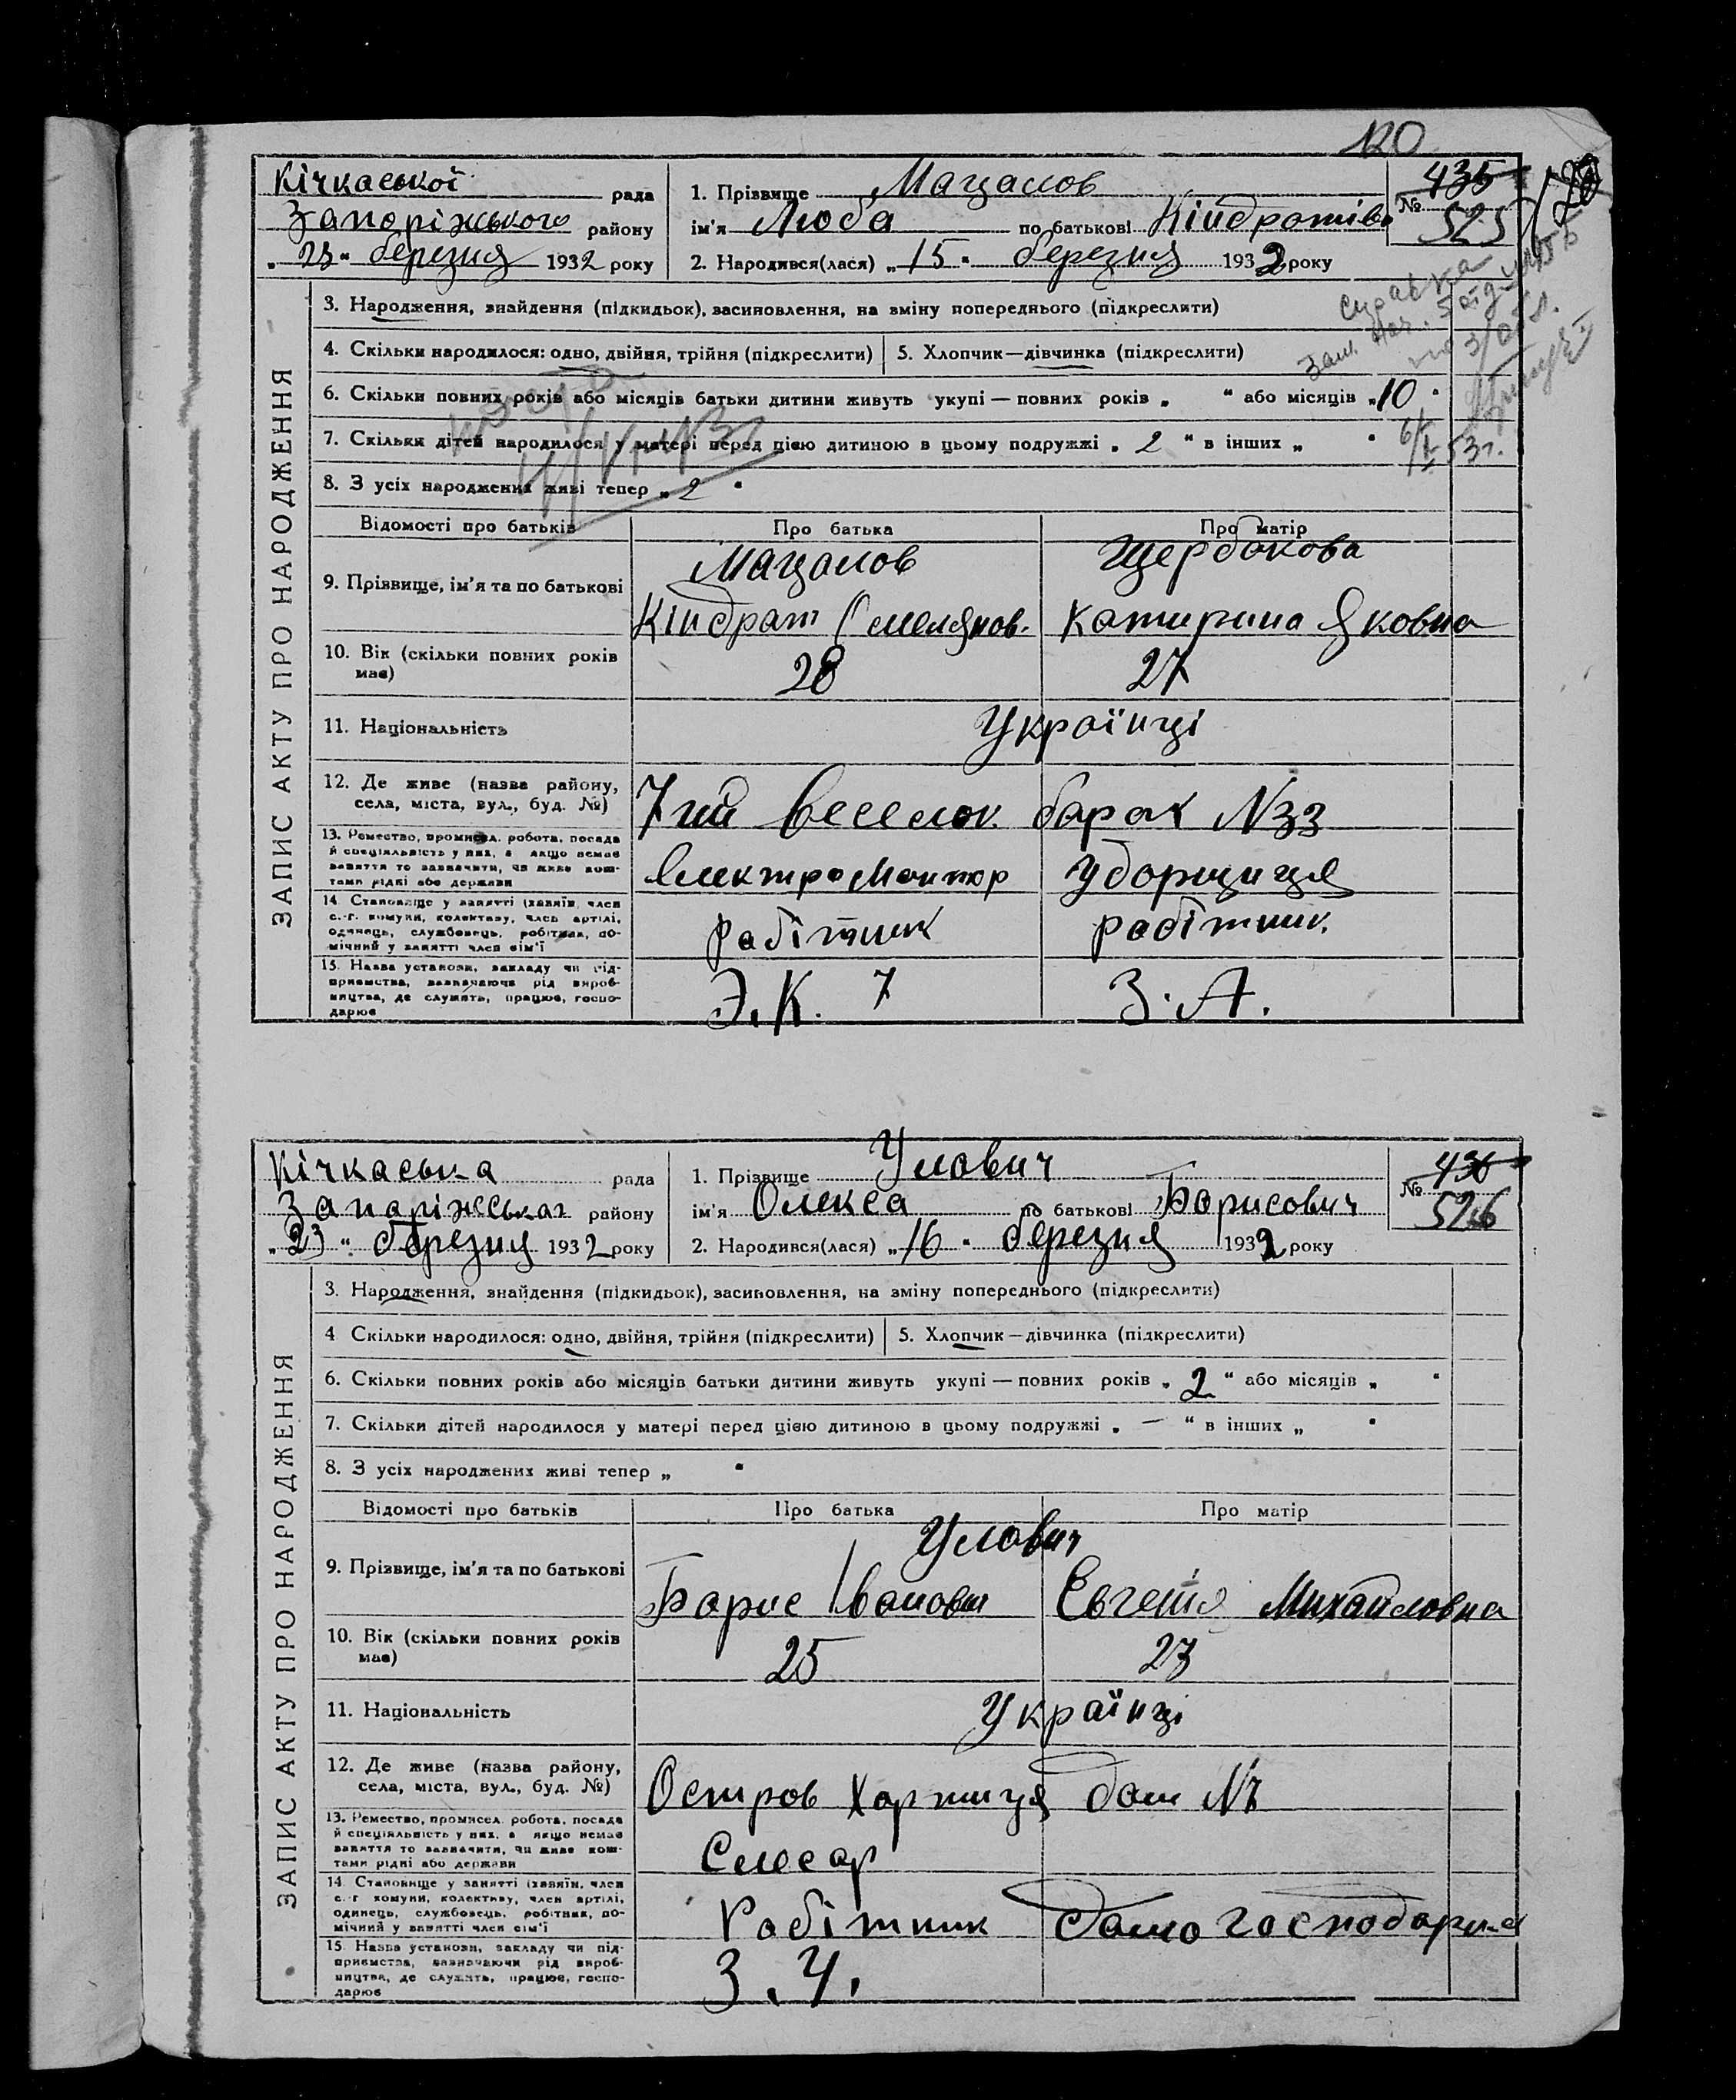 120
Кічкаської рада
Запоріжського району
„23“ березня 1932 року
1. Прізвище Мацалов
ім'я Люба по батькові Кіндратівн
2. Народився(лася) „15“ березня 1932 року
№ 435
525
ЗАПИС АКТУ ПРО НАРОДЖЕННЯ
3. Народження, знайдення (підкидьок), засиновлення, на зміну попереднього (підкреслити)
4. Скільки народилося: одно, двійня, трійня (підкреслити) 5. Хлопчик—дівчинка (підкреслити)
6. Скільки повних років або місяців батьки дитини живуть укупі — повних років „ “ або місяців „10“
7. Скільки дітей народилося у матері перед цією дитиною в цьому подружжі „2“ в інших „ “
8. З усіх народжених живі тепер „2“
справка
6/I 53г.
Відомості про батьків Про батька Про матір
9. Прізвище, ім'я та по батькові
Мацалов Щербакова
Кіндрат Омелянов. Катирина Яковна
10. Вік (скільки повних років має) 28 27
11. Національність Українці
12. Де живе (назва району, села, міста, вул., буд. №) 7ий веселок. барак N33
13. Ремество, промисел, робота, посада й спеціяльність у них, а якщо немає заняття то зазначити, чи живе коштами рідні або держави Електромонтюр Уборщиця
14. Становище у занятті (хазяїн, член с.-г. комуни, колективу, член артілі, одинець, службовець, робітник, помічний у занятті член сім'ї робітник робітник.
15. Назва установи, закладу чи підприємства, зазначаючи рід виробництва, де служить, працює, господарює Э.К. 7 З.А.
Кічкаська рада
Запоріжськаг району
„23“ березня 1932 року
1. Прізвище Улович
ім'я Олекса по батькові Борисович
2. Народився(лася) „16“ березня 1932 року
№ 436
526
ЗАПИС АКТУ ПРО НАРОДЖЕННЯ
3. Народження, знайдення (підкидьок), засиновлення, на зміну попереднього (підкреслити)
4 Скільки народилося: одно, двійня, трійня (підкреслити) 5. Хлопчик—дівчинка (підкреслити)
6. Скільки повних років або місяців батьки дитини живуть укупі — повних років „2“ або місяців „ “
7. Скільки дітей народилося у матері перед цією дитиною в цьому подружжі „—“ в інших „ “
8. З усіх народжених живі тепер „ “
Відомості про батьків Про батька Про матір
9. Прізвище, ім'я та по батькові
Улович
Борис Іванович Євгенія Михайловна
10. Вік (скільки повних років має) 25 23
11. Національність Українці
12. Де живе (назва району, села, міста, вул., буд. №) Остров Хортиця дом №
13. Ремество, промисел, робота, посада й спеціяльність у них, а якщо немає заняття то зазначити, чи живе коштами рідні або держави Слесар
14. Становище у занятті (хазяїн, член с.-г комуни, колективу, член артілі, одинець, службовець, робітник, помічний у занятті член сім'ї Робітник домогосподарка
15. Назва установи, закладу чи підприємства, зазначаючи рід виробництва, де служить, працює, господарює З.Ч.